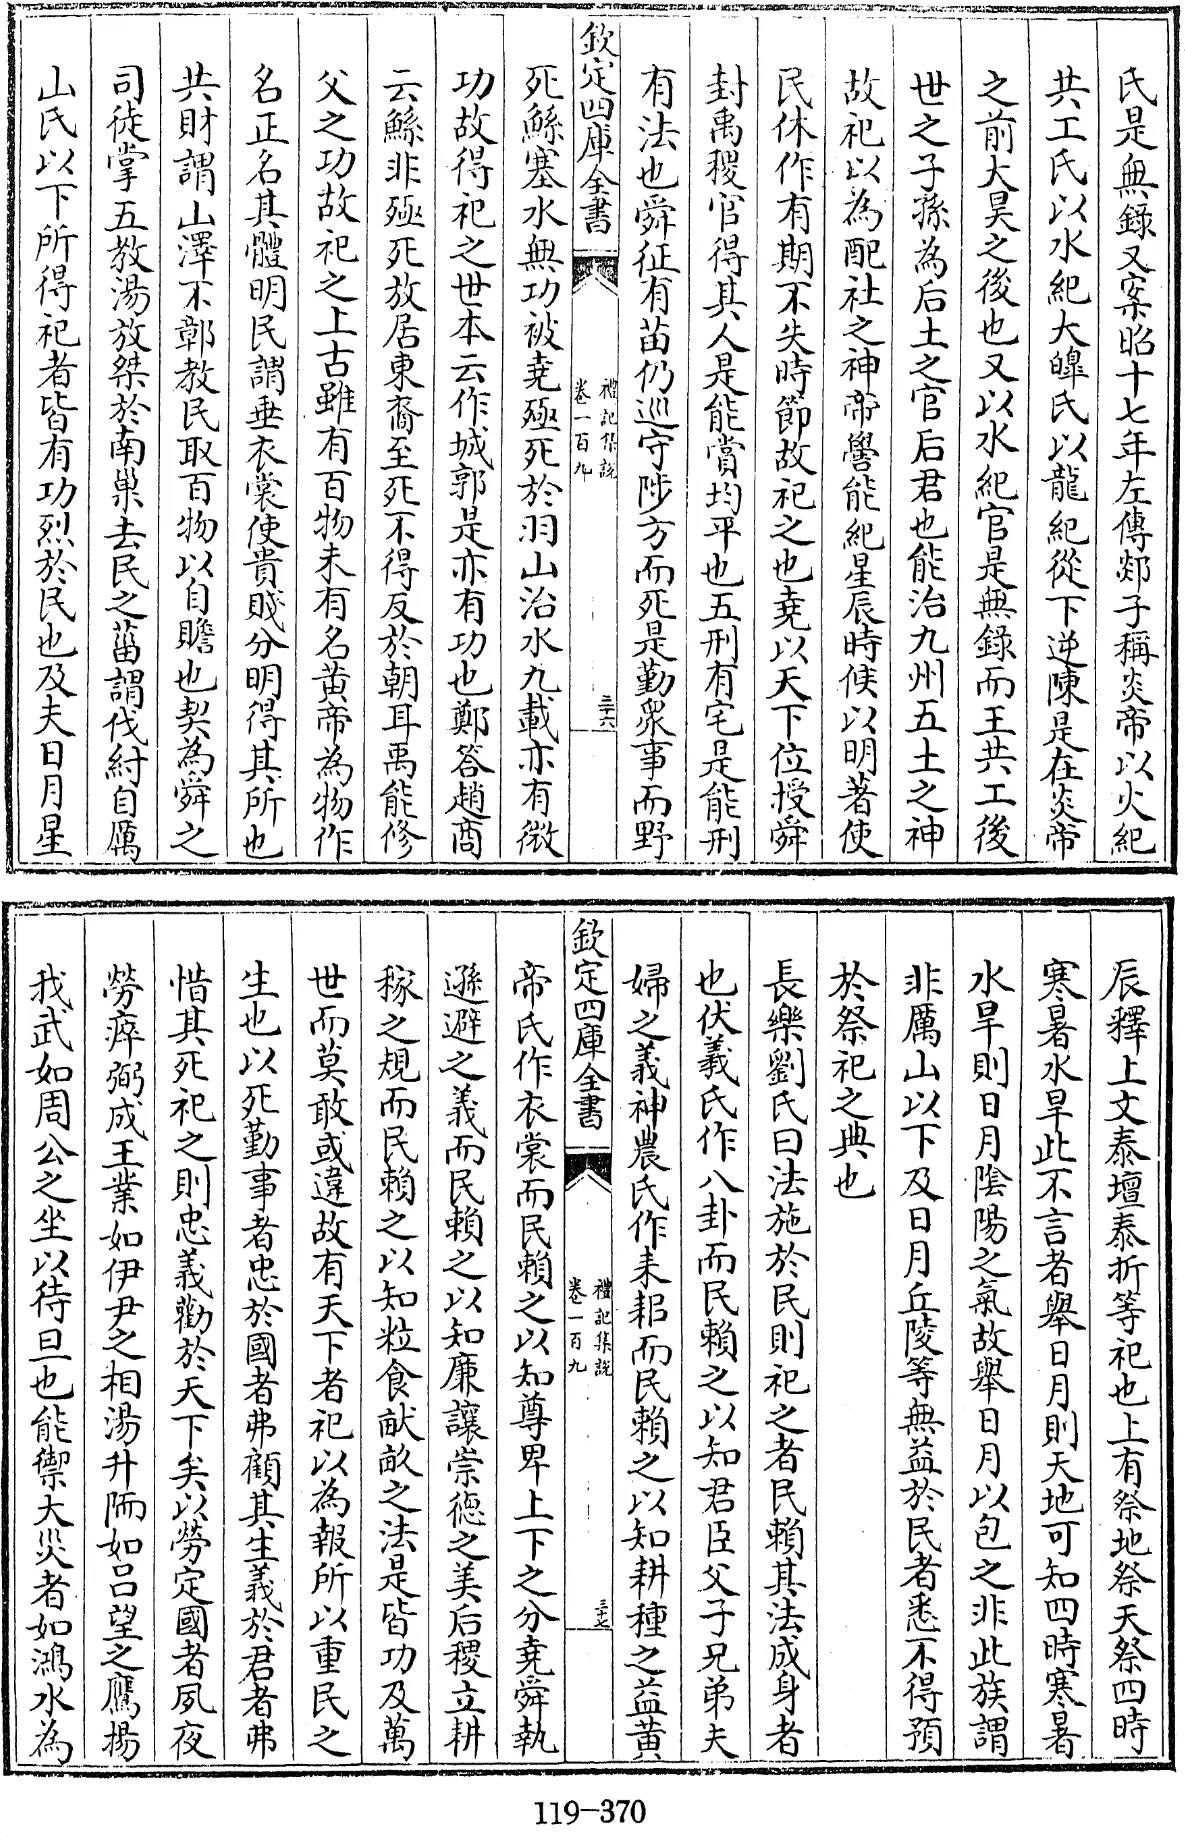 氏是無錄又案昭十七年左傳郯子稱炎帝以火紀
共工氏以水紀大皥氏以龍紀從下逆陳是在炎帝
之前大昊之後也又以水紀官是無錄而王共工後
世之子孫為后土之官后君也能治九州五土之神
故祀以為配社之神帝嚳能紀星辰時候以明著使
民休作有期不失時節故祀之也堯以天下位授舜
封禹稷官得其人是能賞均平也五刑有宅是能刑
有法也舜征有苗仍巡守陟方而死是勤衆事而野
欽定四庫全書
禮記集說
卷一百九
三十六
死鯀塞水無功被堯殛死於羽山治水九載亦有微
功故得祀之世本云作城郭是亦有功也鄭答趙商
云鯀非殛死放居東裔至死不得反於朝耳禹能修
父之功故祀之上古雖有百物未有名黃帝為物作
名正名其體明民謂垂衣裳使貴賤分明得其所也
共財謂山澤不鄣教民取百物以自贍也契為舜之
司徒掌五教湯放桀於南巢去民之菑謂伐紂自厲
山氏以下所得祀者皆有功烈於民也及夫日月星
辰釋上文泰壇泰折等祀也上有祭地祭天祭四時
寒暑水旱此不言者舉日月則天地可知四時寒暑
水旱則日月陰陽之氣故舉日月以包之非此族謂
非厲山以下及日月丘陵等無益於民者悉不得預
於祭祀之典也
長樂劉氏曰法施於民則祀之者民賴其法成身者
也伏羲氏作八卦而民賴之以知君臣父子兄弟夫
婦之義神農氏作耒耜而民賴之以知耕種之益黃
欽定四庫全書
禮記集說
卷一百九
三十七
帝氏作衣裳而民賴之以知尊卑上下之分堯舜執
遜避之義而民賴之以知廉讓崇德之美后稷立耕
稼之規而民賴之以知粒食畎畝之法是皆功及萬
世而莫敢或違故有天下者祀以為報所以重民之
生也以死勤事者忠於國者弗顧其生義於君者弗
惜其死祀之則忠義勸於天下矣以勞定國者夙夜
勞瘁弼成王業如伊尹之相湯升陑如呂望之鷹揚
我武如周公之坐以待旦也能禦大災者如鴻水為
119-370